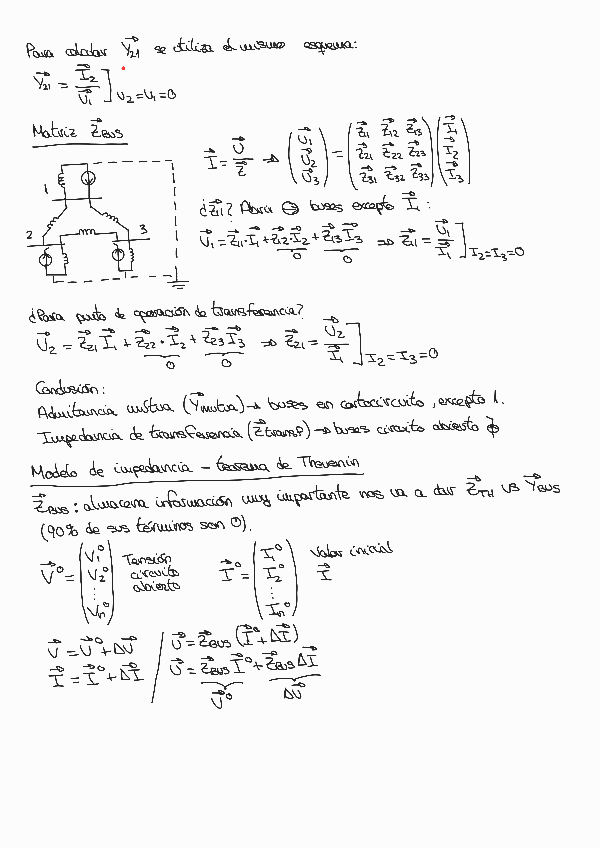 Para calcular Y⃗21 se utiliza el mismo esquema:
Y⃗21 = I⃗2 / U⃗1 ] U2=U1=0
Matriz Z⃗BUS
I⃗ = U⃗ / Z⃗ → (U⃗1 U⃗2 U⃗3) = (Z⃗11 Z⃗12 Z⃗13 / Z⃗21 Z⃗22 Z⃗23 / Z⃗31 Z⃗32 Z⃗33) (I⃗1 I⃗2 I⃗3)
1
2
3
¿Z⃗11? Abrir buses excepto I⃗1:
U⃗1 = Z⃗11·I⃗1 + Z⃗12·I⃗2 + Z⃗13 I⃗3 ⇒ Z⃗11 = U⃗1 / I⃗1 ] I2=I3=0
0 0
¿Para punto de operación de transferencia?
U⃗2 = Z⃗21 I⃗1 + Z⃗22·I⃗2 + Z⃗23 I⃗3 ⇒ Z⃗21 = U⃗2 / I⃗1 ] I2=I3=0
0 0
Conclusión:
Admitancia mutua (Y⃗mutua) → buses en cortocircuito, excepto 1.
Impedancia de transferencia (Z⃗transf) → buses circuito abierto
Modelo de impedancia - teorema de Thevenin
Z⃗BUS: almacena información muy importante nos va a dar Z⃗TH vs Y⃗BUS
(90% de sus términos son 0).
V⃗⁰ = (V1⁰ V2⁰ ... Vn⁰) Tensión circuito abierto I⃗⁰ = (I1⁰ I2⁰ ... In⁰) Valor inicial I⃗
U⃗ = U⃗⁰ + ΔU⃗ / U⃗ = Z⃗BUS (I⃗⁰ + ΔI⃗)
I⃗ = I⃗⁰ + ΔI⃗ / U⃗ = Z⃗BUS I⃗⁰ + Z⃗BUS ΔI⃗
U⃗⁰ ΔU⃗